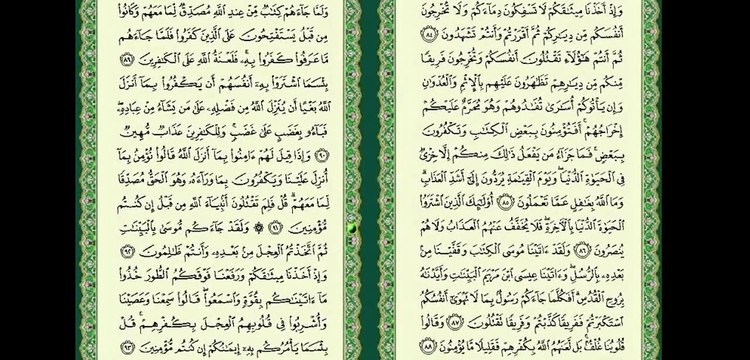 وَإِذْ أَخَذْنَا مِيثَٰقَكُمْ لَا تَسْفِكُونَ دِمَآءَكُمْ وَلَا تُخْرِجُونَ
أَنفُسَكُم مِّن دِيَٰرِكُمْ ثُمَّ أَقْرَرْتُمْ وَأَنتُمْ تَشْهَدُونَ ٨٤
ثُمَّ أَنتُمْ هَٰٓؤُلَآءِ تَقْتُلُونَ أَنفُسَكُمْ وَتُخْرِجُونَ فَرِيقًا
مِّنكُم مِّن دِيَٰرِهِمْ تَظَٰهَرُونَ عَلَيْهِم بِٱلْإِثْمِ وَٱلْعُدْوَٰنِ
وَإِن يَأْتُوكُمْ أُسَٰرَىٰ تُفَٰدُوهُمْ وَهُوَ مُحَرَّمٌ عَلَيْكُمْ
إِخْرَاجُهُمْ ۚ أَفَتُؤْمِنُونَ بِبَعْضِ ٱلْكِتَٰبِ وَتَكْفُرُونَ
بِبَعْضٍ ۚ فَمَا جَزَآءُ مَن يَفْعَلُ ذَٰلِكَ مِنكُمْ إِلَّا خِزْىٌ
فِى ٱلْحَيَوٰةِ ٱلدُّنْيَا ۖ وَيَوْمَ ٱلْقِيَٰمَةِ يُرَدُّونَ إِلَىٰٓ أَشَدِّ ٱلْعَذَابِ ۗ
وَمَا ٱللَّهُ بِغَٰفِلٍ عَمَّا تَعْمَلُونَ ٨٥ أُو۟لَٰٓئِكَ ٱلَّذِينَ ٱشْتَرَوُا۟
ٱلْحَيَوٰةَ ٱلدُّنْيَا بِٱلْءَاخِرَةِ ۖ فَلَا يُخَفَّفُ عَنْهُمُ ٱلْعَذَابُ وَلَا هُمْ
يُنصَرُونَ ٨٦ وَلَقَدْ ءَاتَيْنَا مُوسَى ٱلْكِتَٰبَ وَقَفَّيْنَا مِنۢ
بَعْدِهِۦ بِٱلرُّسُلِ ۖ وَءَاتَيْنَا عِيسَى ٱبْنَ مَرْيَمَ ٱلْبَيِّنَٰتِ وَأَيَّدْنَٰهُ
بِرُوحِ ٱلْقُدُسِ ۗ أَفَكُلَّمَا جَآءَكُمْ رَسُولٌۢ بِمَا لَا تَهْوَىٰٓ أَنفُسُكُمُ
ٱسْتَكْبَرْتُمْ فَفَرِيقًا كَذَّبْتُمْ وَفَرِيقًا تَقْتُلُونَ ٨٧ وَقَالُوا۟
قُلُوبُنَا غُلْفٌۢ ۚ بَل لَّعَنَهُمُ ٱللَّهُ بِكُفْرِهِمْ فَقَلِيلًا مَّا يُؤْمِنُونَ ٨٨
وَلَمَّا جَآءَهُمْ كِتَٰبٌ مِّنْ عِندِ ٱللَّهِ مُصَدِّقٌ لِّمَا مَعَهُمْ وَكَانُوا۟
مِن قَبْلُ يَسْتَفْتِحُونَ عَلَى ٱلَّذِينَ كَفَرُوا۟ فَلَمَّا جَآءَهُم
مَّا عَرَفُوا۟ كَفَرُوا۟ بِهِۦ ۚ فَلَعْنَةُ ٱللَّهِ عَلَى ٱلْكَٰفِرِينَ ٨٩
بِئْسَمَا ٱشْتَرَوْا۟ بِهِۦٓ أَنفُسَهُمْ أَن يَكْفُرُوا۟ بِمَآ أَنزَلَ
ٱللَّهُ بَغْيًا أَن يُنَزِّلَ ٱللَّهُ مِن فَضْلِهِۦ عَلَىٰ مَن يَشَآءُ مِنْ عِبَادِهِۦ ۖ
فَبَآءُو بِغَضَبٍ عَلَىٰ غَضَبٍ ۚ وَلِلْكَٰفِرِينَ عَذَابٌ مُّهِينٌ
٩٠ وَإِذَا قِيلَ لَهُمْ ءَامِنُوا۟ بِمَآ أَنزَلَ ٱللَّهُ قَالُوا۟ نُؤْمِنُ بِمَآ
أُنزِلَ عَلَيْنَا وَيَكْفُرُونَ بِمَا وَرَآءَهُۥ وَهُوَ ٱلْحَقُّ مُصَدِّقًا
لِّمَا مَعَهُمْ ۗ قُلْ فَلِمَ تَقْتُلُونَ أَنۢبِيَآءَ ٱللَّهِ مِن قَبْلُ إِن كُنتُم
مُّؤْمِنِينَ ٩١ ۞ وَلَقَدْ جَآءَكُم مُّوسَىٰ بِٱلْبَيِّنَٰتِ
ثُمَّ ٱتَّخَذْتُمُ ٱلْعِجْلَ مِنۢ بَعْدِهِۦ وَأَنتُمْ ظَٰلِمُونَ ٩٢
وَإِذْ أَخَذْنَا مِيثَٰقَكُمْ وَرَفَعْنَا فَوْقَكُمُ ٱلطُّورَ خُذُوا۟
مَآ ءَاتَيْنَٰكُم بِقُوَّةٍ وَٱسْمَعُوا۟ ۖ قَالُوا۟ سَمِعْنَا وَعَصَيْنَا
وَأُشْرِبُوا۟ فِى قُلُوبِهِمُ ٱلْعِجْلَ بِكُفْرِهِمْ ۚ قُلْ
بِئْسَمَا يَأْمُرُكُم بِهِۦٓ إِيمَٰنُكُمْ إِن كُنتُم مُّؤْمِنِينَ ٩٣